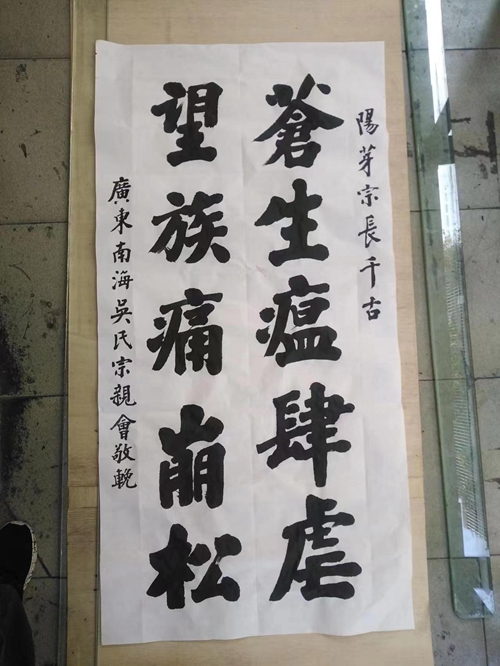 陽芽宗長千古
蒼生瘟肆虐
望族痛崩松
廣東南海吳氏宗親會敬輓